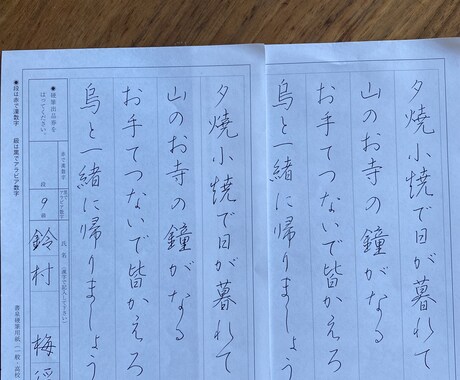 夕焼小焼で日が暮れて
山のお寺の鐘がなる
お手てつないで皆かえろ
烏と一緒に帰りましょう
夕焼小焼で日が暮れて
山のお寺の鐘がなる
お手てつないで皆かえろ
烏と一緒に帰りましょう
硬筆出品券を
はってください。
段 9 級
氏名
鈴村 梅
●段は赤で漢数字 級は黒でアラビア数字